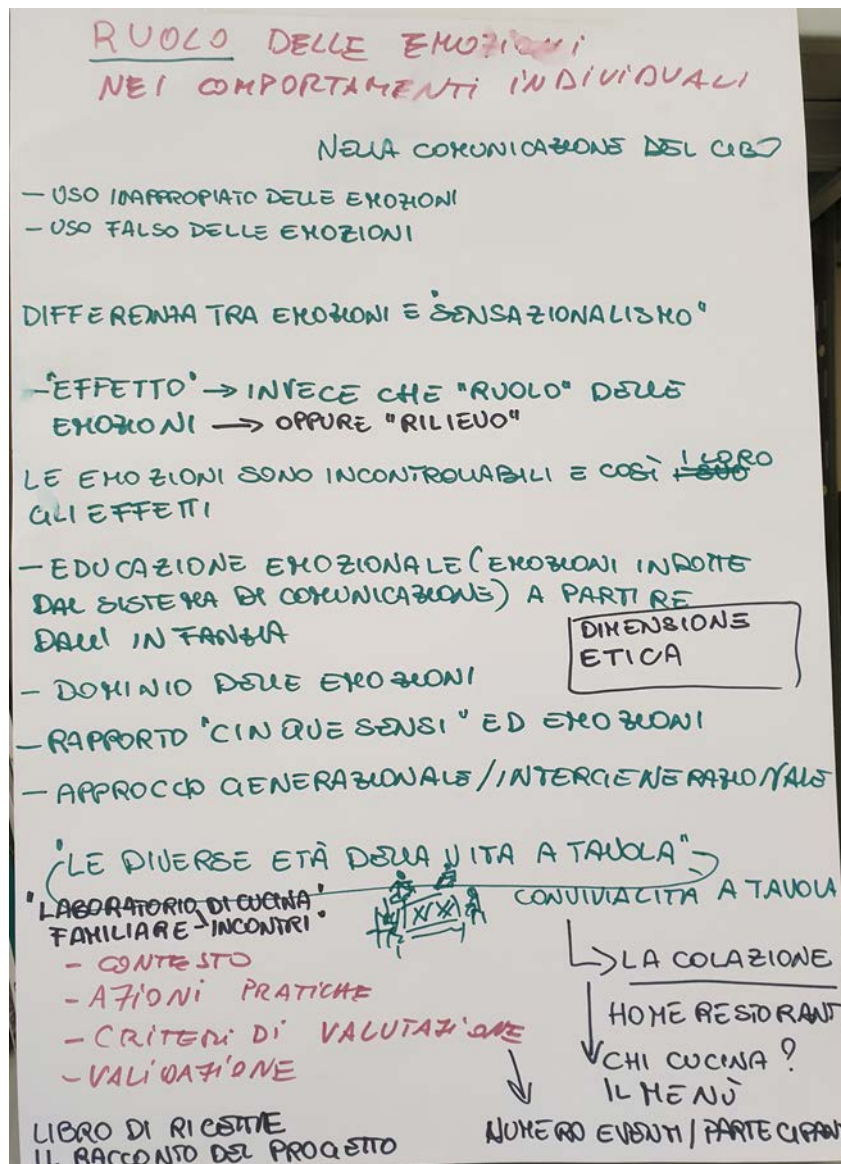 RUOLO DELLE EMOZIONI
NEI COMPORTAMENTI INDIVIDUALI
NELLA COMUNICAZIONE DEL CIBO
- USO INAPPROPIATO DELLE EMOZIONI
- USO FALSO DELLE EMOZIONI
DIFFERENZA TRA EMOZIONI E "SENSAZIONALISMO"
- "EFFETTO" → INVECE CHE "RUOLO" DELLE
EMOZIONI → OPPURE "RILIEVO"
LE EMOZIONI SONO INCONTROLLABILI E COSÌ I LORO
GLI EFFETTI
- EDUCAZIONE EMOZIONALE (EMOZIONI INDOTTE
DAL SISTEMA DI COMUNICAZIONE) A PARTIRE
DALL'INFANZIA
DIMENSIONE
ETICA
- DOMINIO DELLE EMOZIONI
- RAPPORTO "CINQUE SENSI" ED EMOZIONI
- APPROCCIO GENERAZIONALE/INTERGENERAZIONALE
"LE DIVERSE ETÀ DELLA VITA A TAVOLA"
"LABORATORIO DI CUCINA
FAMILIARE - INCONTRI"
CONVIVIALITÀ A TAVOLA
- CONTESTO
- AZIONI PRATICHE
- CRITERI DI VALUTAZIONE
- VALIDAZIONE
LA COLAZIONE
HOME RESTORANT
CHI CUCINA?
IL MENÙ
NUMERO EVENTI / PARTECIPANT
LIBRO DI RICETTE
IL RACCONTO DEL PROGETTO